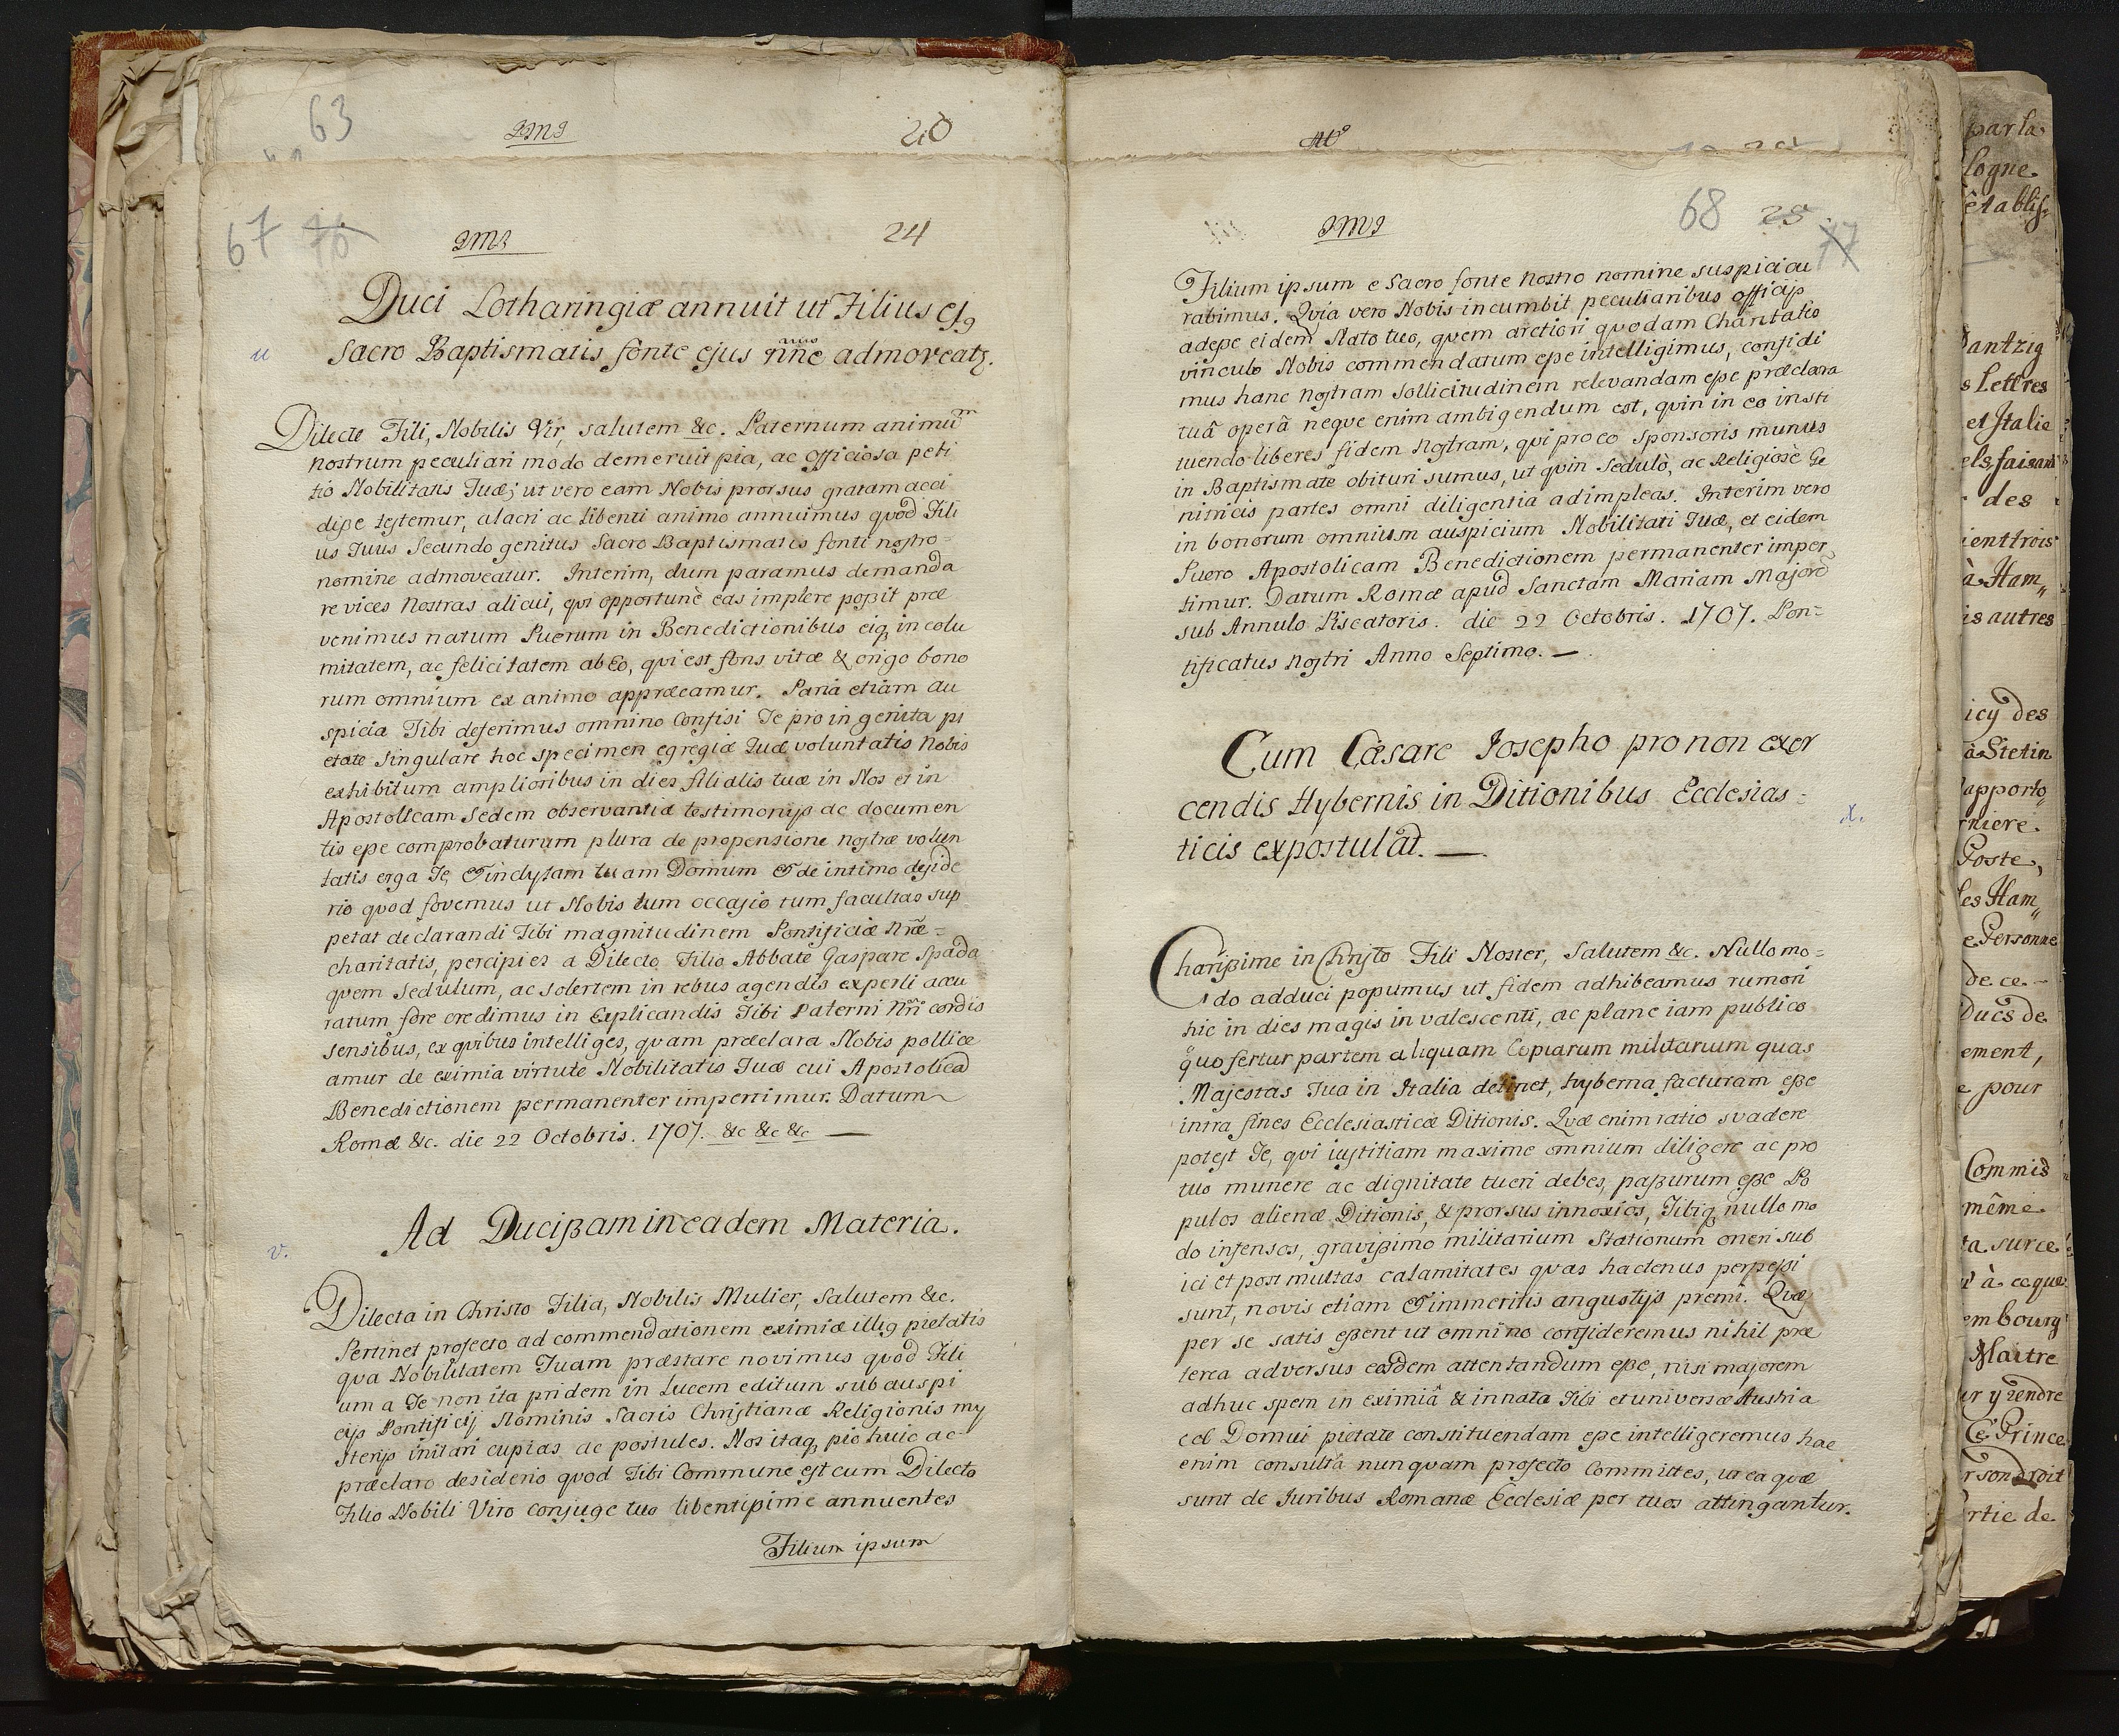 63
20
67 76
24
Duci Lotharingiæ annuit ut Filius ej9
u
Sacro Baptismatis fonte ejus nñe admoveatz.
Dilecte Fili, Nobilis Vir, salutem &c. Paternum animũ
nostrum peculiari modo demeruit pia, ac officiosa peti
tio Nobilitatis Tuæ; ut vero eam Nobis prorsus gratam acci
diße testemur, alacri ac libenti animo annuimus quod Fili
us Tuus Secundo genitus Sacro Baptismatis fonti nostro
nomine admoveatur. Interim, dum paramus demanda
re vices Nostras alicui, qui opportunè eas implere poßit præ
venimus natum Puerum in Benedictionibus eiq, in colu
mitatem, ac felicitatem ab Eo, qui est fons vitæ & origo bono
rum omnium ex animo appræcamur. Paria etiam au
spicia Tibi deferimus omnino Confisi Te pro in genita pi
etate singulare hoc specimen egregiæ Tuæ voluntatis Nobis
exhibitum amplioribus in dies filialis tuæ in Nos et in
Apostolicam Sedem observantiæ testimonijs ac documen
tis eße comprobaturum plura de propensione nostræ volun
tatis erga Te, & inclytam tuam Domum & de intimo deside
rio quod fovemus ut Nobis tum occasio tum facultas sup
petat declarandi Tibi magnitudinem Pontificiæ Nræ =
charitatis, percipies a Dilecto Filio Abbate Gaspare Spada
quem sedulum, ac solertem in rebus agendis experti accu
ratum fore credimus in Explicandis Tibi Paterni Nri cordis
sensibus, ex quibus intelliges, quam præclara Nobis pollice
amur de eximia virtute Nobilitatis Tuæ cui Apostolicã
Benedictionem permanenter impertimur. Datum
Romæ &c. die 22 Octobris. 1707. &c &c &c —
Ad Ducißam in eadem Materia.
v.
Dilecta in Christo Filia, Nobilis Mulier, salutem &c.
Pertinet profecto ad commendationem eximiæ illi9 pietatis
qua Nobilitatem Tuam præstare novimus quod Fili
um a Te non ita pridem in Lucem editum sub auspi
cijs Pontificij Nominis Sacris Christianæ Religionis my
sterijs initiari cupias ac postules. Nos itaq, pio huic ac
præclaro desiderio quod Tibi Commune est cum Dilecto
Filio Nobili Viro conjuge tuo libentißime annuentes
Filium ipsum
68 25
77
Filium ipsum e Sacro fonte Nostro nomine suspici cu
rabimus. Qvia vero Nobis incumbit peculiaribus officijs
adeße eidem Nato tuo, quem arctiori quodam Charitatis
vinculo Nobis commendatum eße intelligimus, confidi
mus hanc nostram sollicitudinem relevandam eße præclara
tuâ operâ neque enim ambigendum est, quin in eo insti
tuendo liberes fidem Nostram, qui pro eo Sponsoris munus
in Baptismate obituri sumus, ut quin Sedulò, ac Religiosè Ge
nitricis partes omni diligentia adimpleas. Interim vero
in bonorum omnium auspicium Nobilitati Tuæ, et eidem
Puero Apostolicam Benedictionem permanenter imper
timur. Datum Romæ apud Sanctam Mariam Majorẽ
sub Annulo Piscatoris. die 22 Octobris. 1707. Pon=
tificatus Nostri Anno Septimo. —
Cum Cæsare Josepho pro non exer
cendis Hybernis in Ditionibus Ecclesias =
x.
ticis expostulat. —
Charißime in Christo Fili Noster, Salutem &c. Nullo mo=
do adduci poßumus ut fidem adhibeamus rumori
hic in dies magis invalescenti, ac plane iam publico
quo fertur partem aliquam Copiarum militarium quas
Majestas Tua in Italia detinet, hyberna facturam eße
intra fines Ecclesiasticæ Ditionis. Qvæ enim ratio svadere
potest Te, qui iustitiam maxime omnium diligere ac pro
tuo munere ac dignitate tueri debes, paßurum eße Po
pulos alienæ Ditionis, & prorsus innoxios, Tibiq, nullo mo
do infensos, gravißimo militarium Stationum oneri sub
ici et post multas calamitates quas hactenus perpeßi
sunt, novis etiam & immeritis angustijs premi. Qvæ
per se satis eßent ut omnino confideremus nihil præ
terea adversus eosdem attentandum eße, nisi majorem
adhuc spem in eximiâ & innata Tibi et universæ Austria
cæ Domui pietate constituendam eße intelligeremus hac
enim consultâ nunquam profecto Committes, ut ea quæ
sunt de Juribus Romanæ Ecclesiæ per tuos attingantur.
par la
logne
établis-
Dantzig
s Lettres
et Italie
els, faisant
des
ient trois
à Ham,,
is autres
icy des
à Stetin
apporto,,
rniere
Poste,
les Ham,,
e Personne
de ce -
Ducs de
ement,
e pour
Commis
même
ta surce
t à ce que
embourg
Maitre
ur y rendre
Ce Prince
r son droit
rtie de